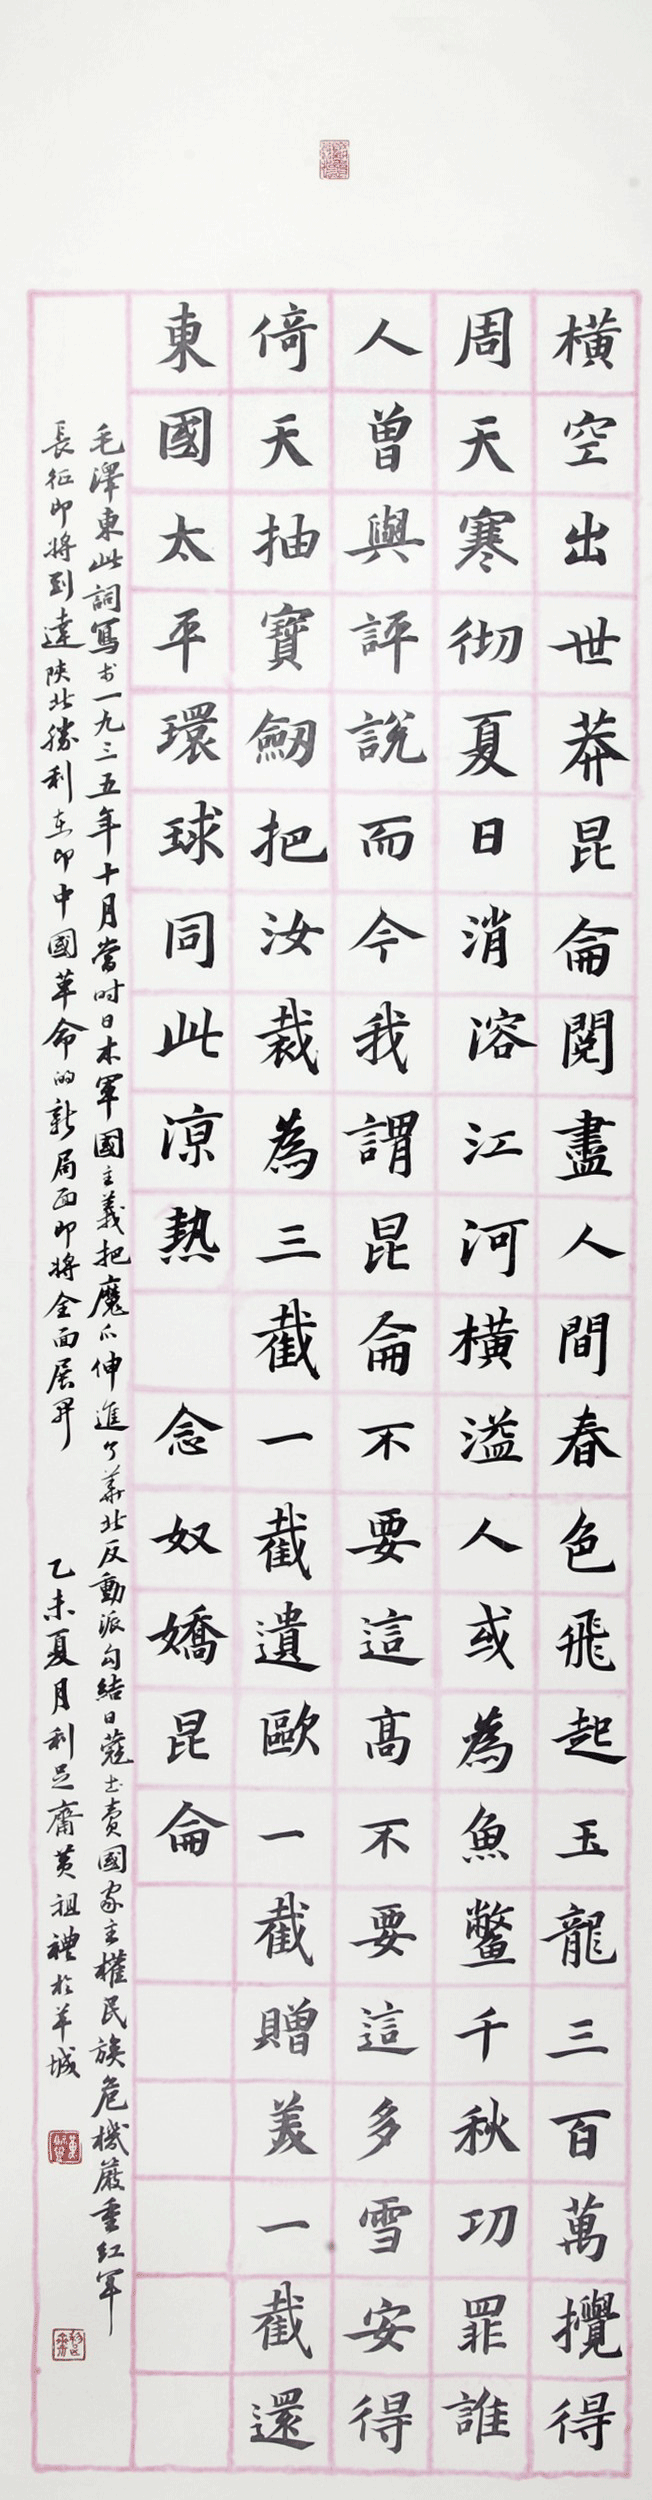 橫空出世莽昆侖閱盡人間春色飛起玉龍三百萬攪得
周天寒彻夏日消溶江河橫溢人或為魚鱉千秋功罪誰
人曾與評說而今我謂昆侖不要這高不要這多雪安得
倚天抽寶劒把汝裁為三截一截遺歐一截贈美一截還
東國太平環球同此涼熱 念奴嬌昆侖
毛澤東此詞寫於一九三五年十月當時日本軍國主義把魔爪伸進了華北反動派勾結日蔻出賣國家主權民族危機嚴重紅軍
長征即將到達陝北勝利在即中國革命的新局面即將全面展開 乙未夏月利足齋黃祖禮於羊城